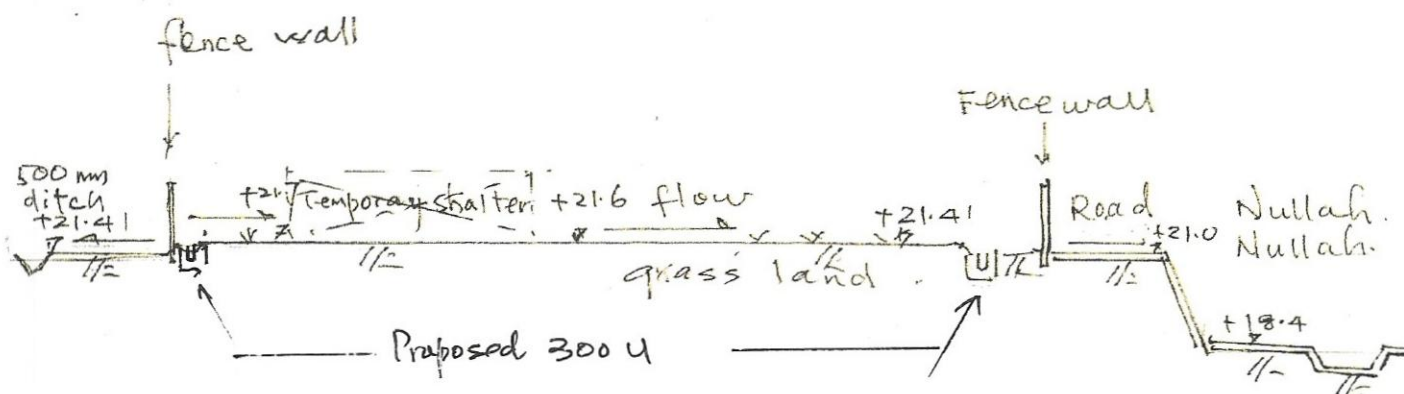 fence wall
Fence wall
500 mm
ditch
+21.41
Temporary shalter
+21.6 flow
+21.41
Road
Nullah.
+21.0
Nullah.
grass land.
+18.4
Proposed 300 U